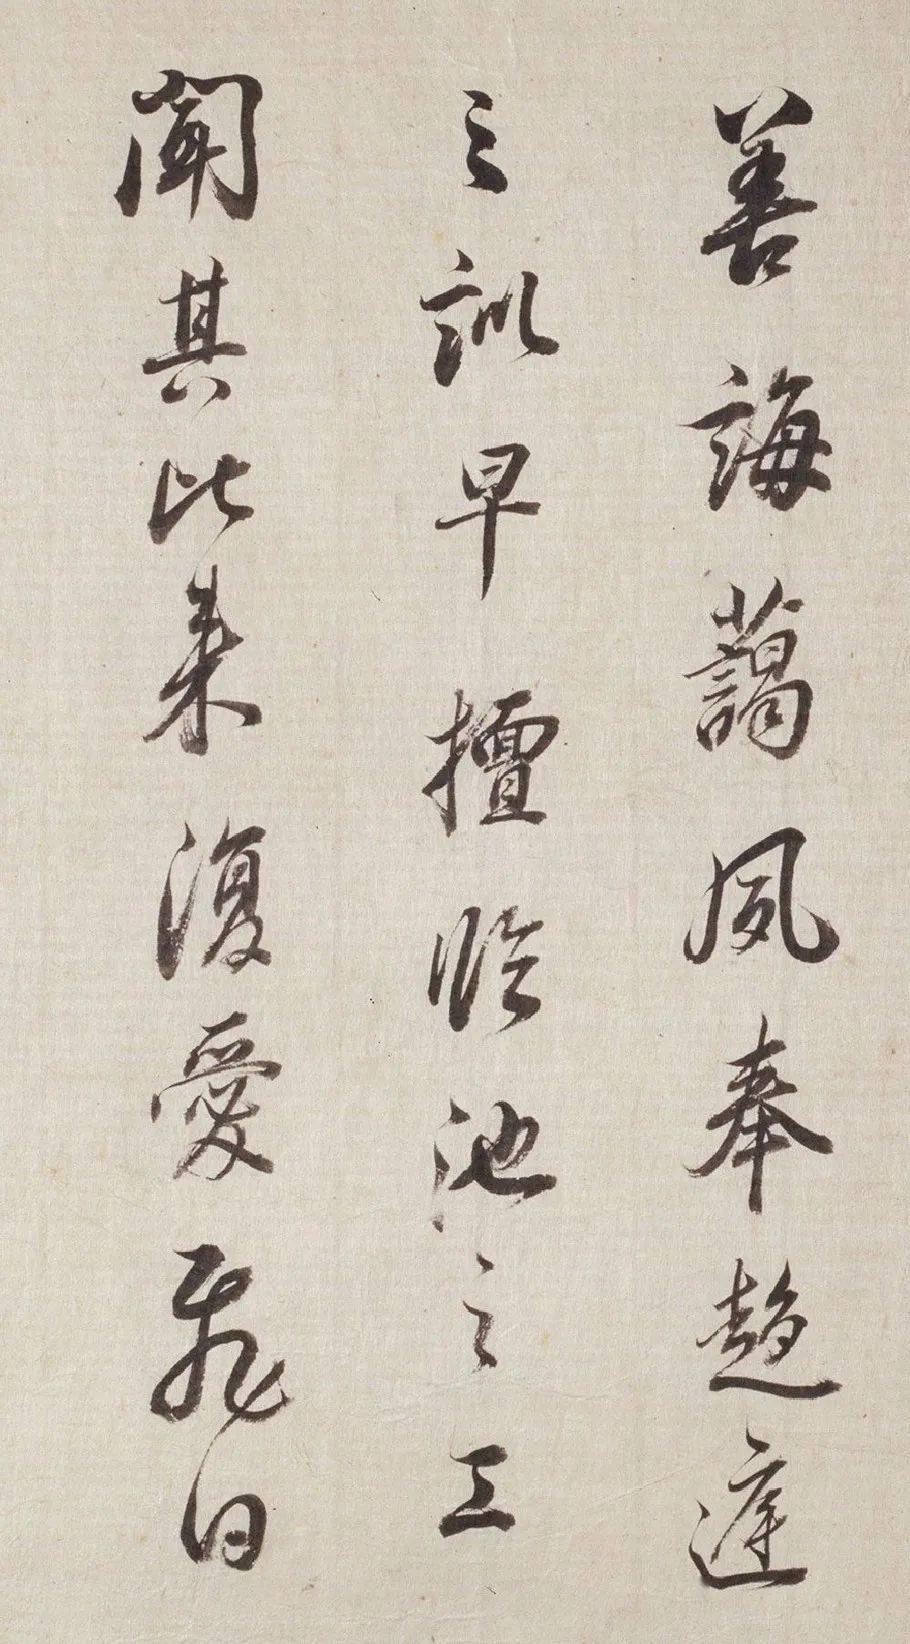 善誨藹夙奉趍遳
之訓早擅臨池之工
聞其比来復愛飛白